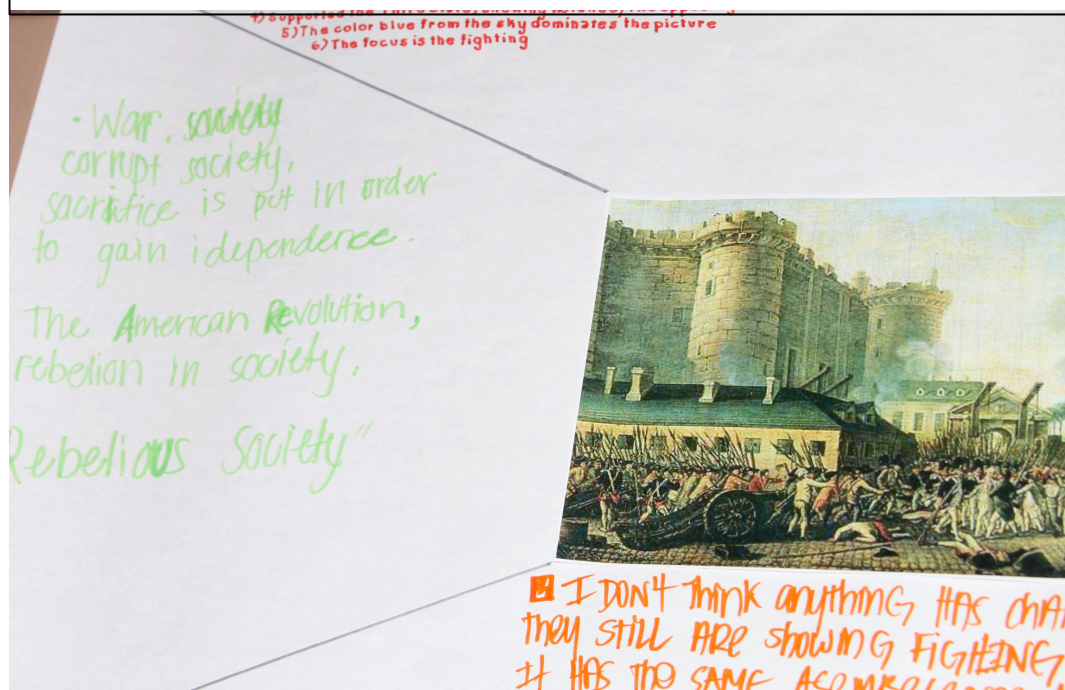 5) The color blue from the sky dominates the picture
6) The focus is the fighting
• War, society
corrupt society,
sacrifice is put in order
to gain idependence.
The American Revolution,
rebelion in society,
Rebelious Society"
I DON't think anything HAS
they STILL ARE showing FIGHTING
It HAS THE SAME